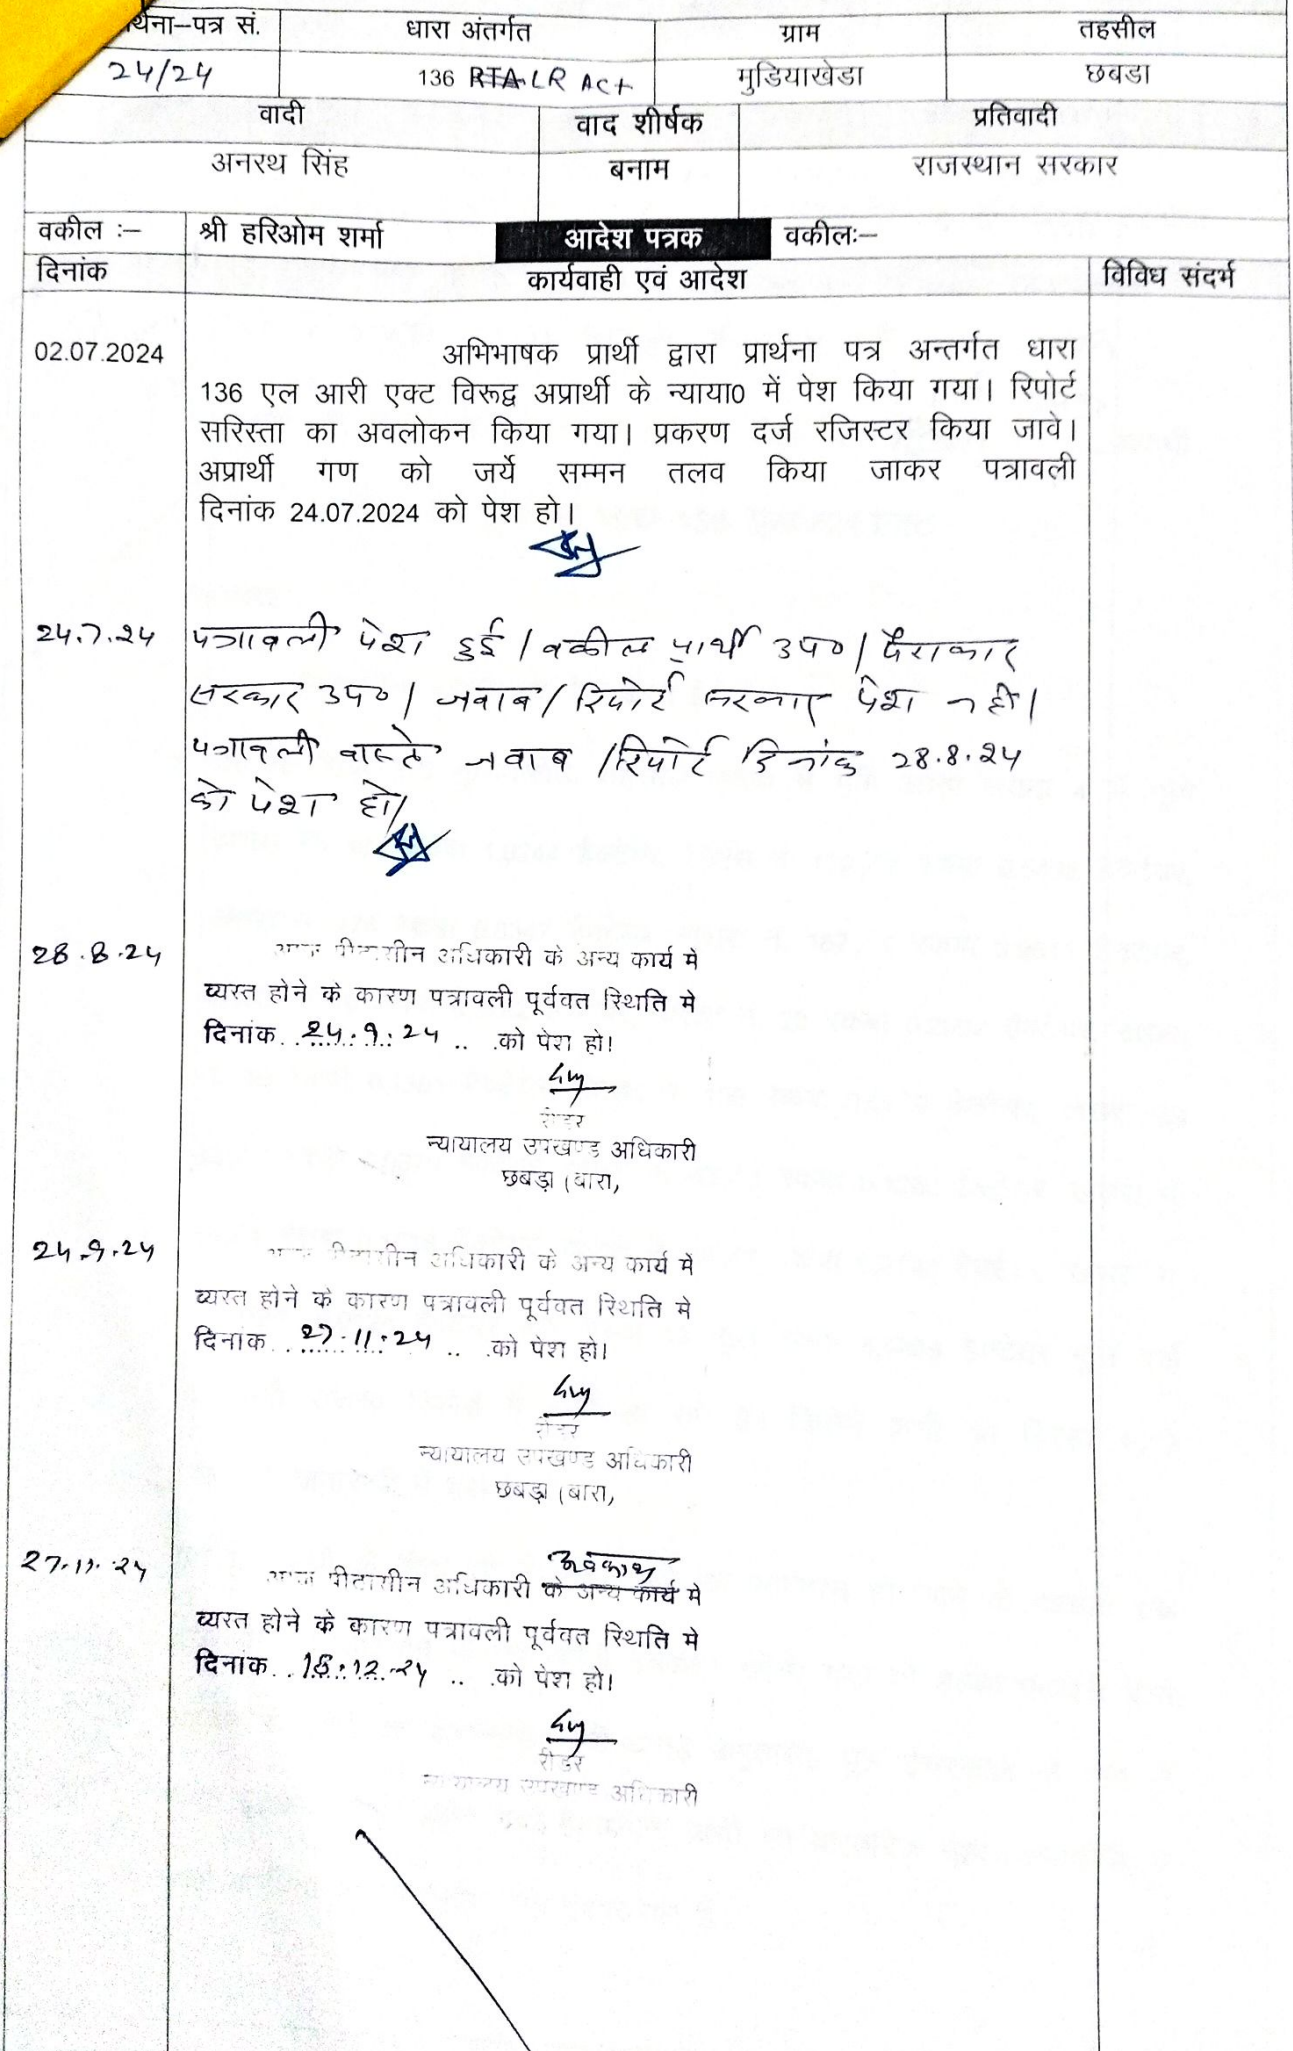 र्थना–पत्र सं. धारा अंतर्गत ग्राम तहसील
24/24 136 RTA LR ACT मुडियाखेडा छबडा
वादी वाद शीर्षक प्रतिवादी
अनरथ सिंह बनाम राजस्थान सरकार
वकील :– श्री हरिओम शर्मा आदेश पत्रक वकीलः–
दिनांक कार्यवाही एवं आदेश विविध संदर्भ
02.07.2024 अभिभाषक प्रार्थी द्वारा प्रार्थना पत्र अन्तर्गत धारा
136 एल आरी एक्ट विरूद्व अप्रार्थी के न्याया0 में पेश किया गया। रिपोर्ट
सरिस्ता का अवलोकन किया गया। प्रकरण दर्ज रजिस्टर किया जावे।
अप्रार्थी गण को जर्ये सम्मन तलव किया जाकर पत्रावली
दिनांक 24.07.2024 को पेश हो।
24.7.24 पत्रावली पेश हुई। वकील प्रार्थी उप०। पैरोकार
सरकार उप०। जवाब/रिपोर्ट सरकार पेश नही।
पत्रावली वास्ते जवाब/रिपोर्ट दिनांक 28.8.24
को पेश हो।
28.8.24 आज पीठासीन अधिकारी के अन्य कार्य मे
व्यस्त होने के कारण पत्रावली पूर्ववत स्थिति मे
दिनांक. 24.9.24 .. .को पेश हो।
रीडर
न्यायालय उपखण्ड अधिकारी
छबड़ा (बारा,
24.9.24 आज पीठासीन अधिकारी के अन्य कार्य मे
व्यस्त होने के कारण पत्रावली पूर्ववत स्थिति मे
दिनांक. 27.11.24 .. .को पेश हो।
रीडर
न्यायालय उपखण्ड अधिकारी
छबड़ा (बारा,
अवकाश
27.11.24 आज पीठासीन अधिकारी के अन्य कार्य मे
व्यस्त होने के कारण पत्रावली पूर्ववत स्थिति मे
दिनांक. .12.24 .. .को पेश हो।
रीडर
न्यायालय उपखण्ड अधिकारी